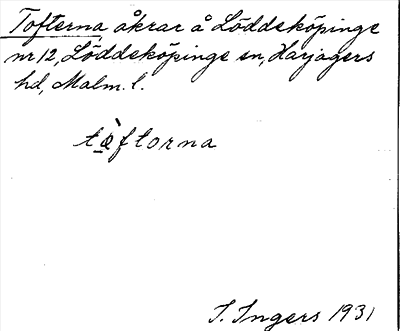 Tofterna åkrar å Löddeköpinge
nr 12, Löddeköpinge sn, Harjagers
hd, Malm. l.
tæ̀ftorna
I. Ingers 1931